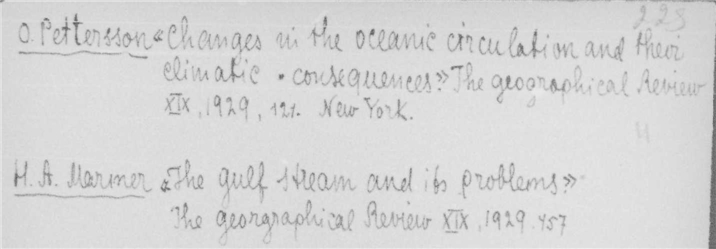 225
O. Pettersson «Changes in the oceanic circulation and their
climatic • consequences». The geographical Review
XIX, 1929, 121. New York.
H
H. A. Marmer «The gulf stream and its problems»
The georgraphical Review XIX, 1929. 457